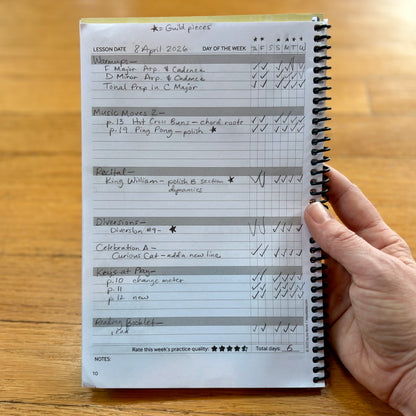 ★ = Guild pieces
LESSON DATE 8 April 2026 DAY OF THE WEEK
Warmups—
F Major Arp. & Cadence
D Minor Arp. & Cadence
Tonal Prep in C Major
Music Moves 2—
p. 13 Hot Cross Buns – chord roots
p. 19 Ping Pong – polish ★
Recital—
King William – polish B section ★
dynamics
Diversions—
Diversion #9 – ★
Celebration A—
Curious Cat – add a new line
Keys at Play—
p. 10 change meter
p. 11
p. 12 new
Reading Booklet—
Rate this week's practice quality: ★★★★★ Total days: 6
NOTES:
10